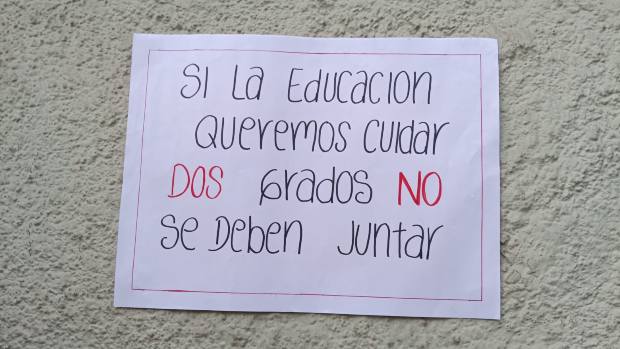 SI La EDUCACION
QUeremos cuidar
DOS Grados NO
se DeBen Juntar